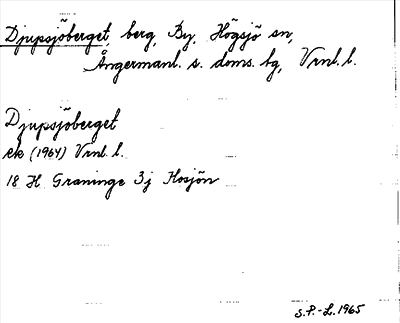 Djupsjöberget, berg, By, Högsjö sn,
Ångermanl. s. doms. bg, Vrnl. l.
Djupsjöberget
ek (1964) Vrnl. l.
18 H Graninge 3j Hosjön
S.P.-L. 1965